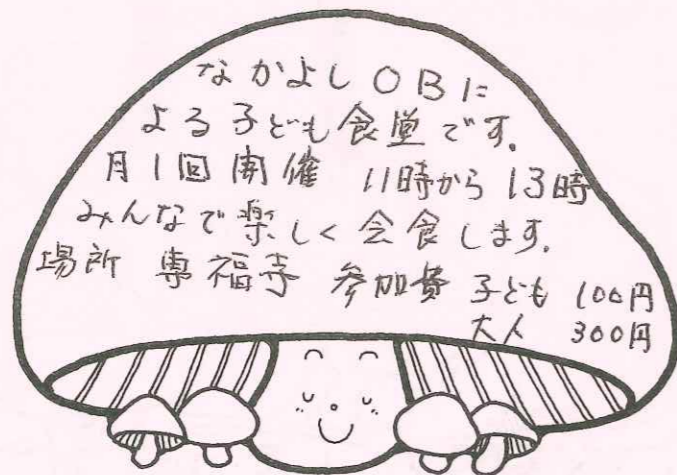 なかよしOBに
よる子ども食堂です。
月1回開催 11時から13時
みんなで楽しく会食します。
場所 専福寺 参加費 子ども 100円
大人 300円